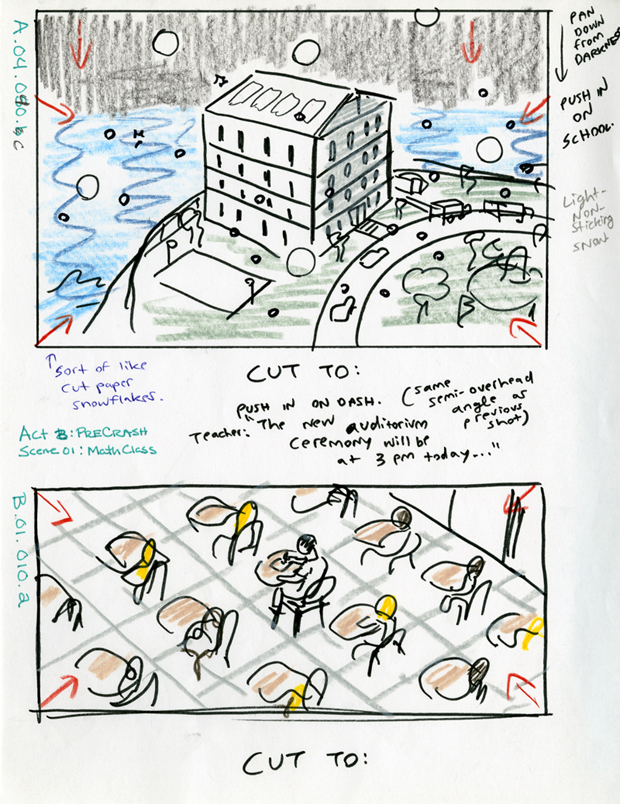 A.04.080.bc
PAN
DOWN
from
DARKNESS
PUSH IN
ON
SCHOOL.
Light-
Non-
Sticking
snow
Sort of like
cut paper
snowflakes.
CUT TO:
PUSH IN ON DASH. (same
semi-overhead
angle as
previous
shot)
Teacher: "The new auditorium
ceremony will be
at 3 pm today..."
Act B: PRECRASH
Scene 01: Math Class
B.01.010.a
CUT TO: